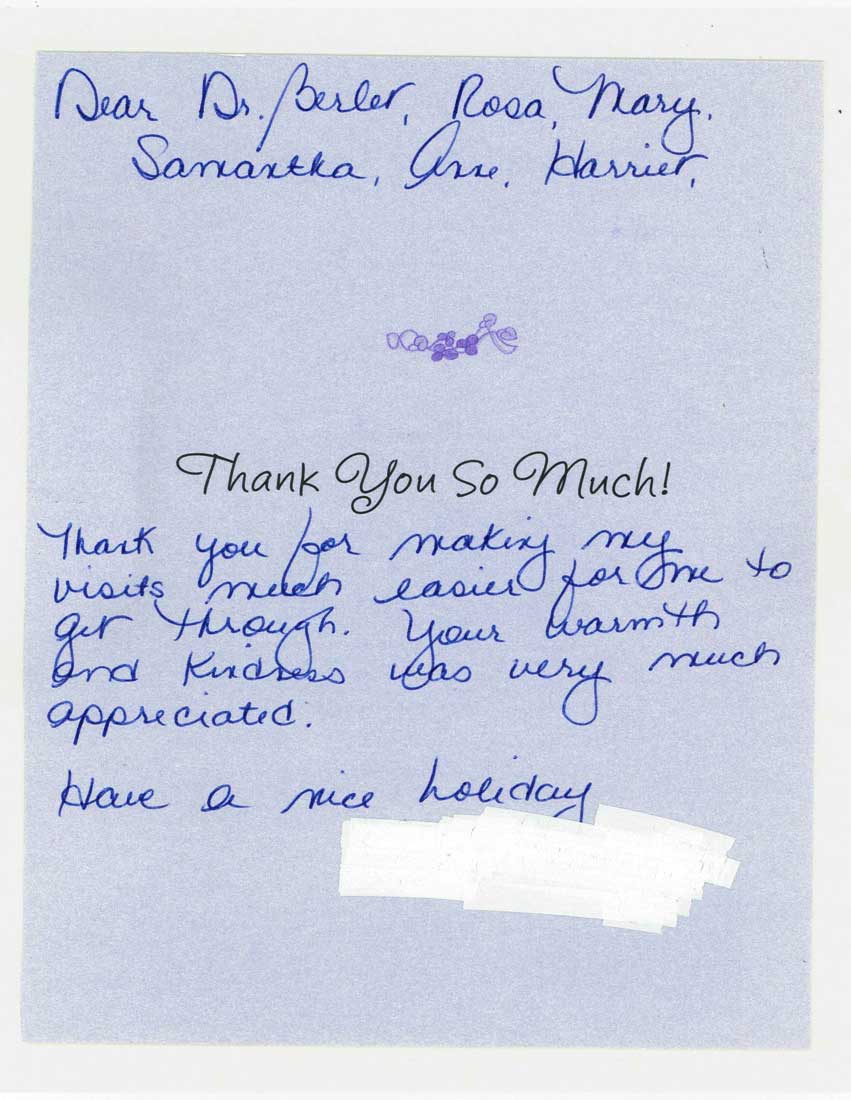 Dear Dr. Berlet, Rosa, Mary,
Samantha, Anne, Harriet,
Thank You So Much!
Thank you for making my
visits much easier for me to
get through. Your warmth
and kindness was very much
appreciated.
Have a nice holiday